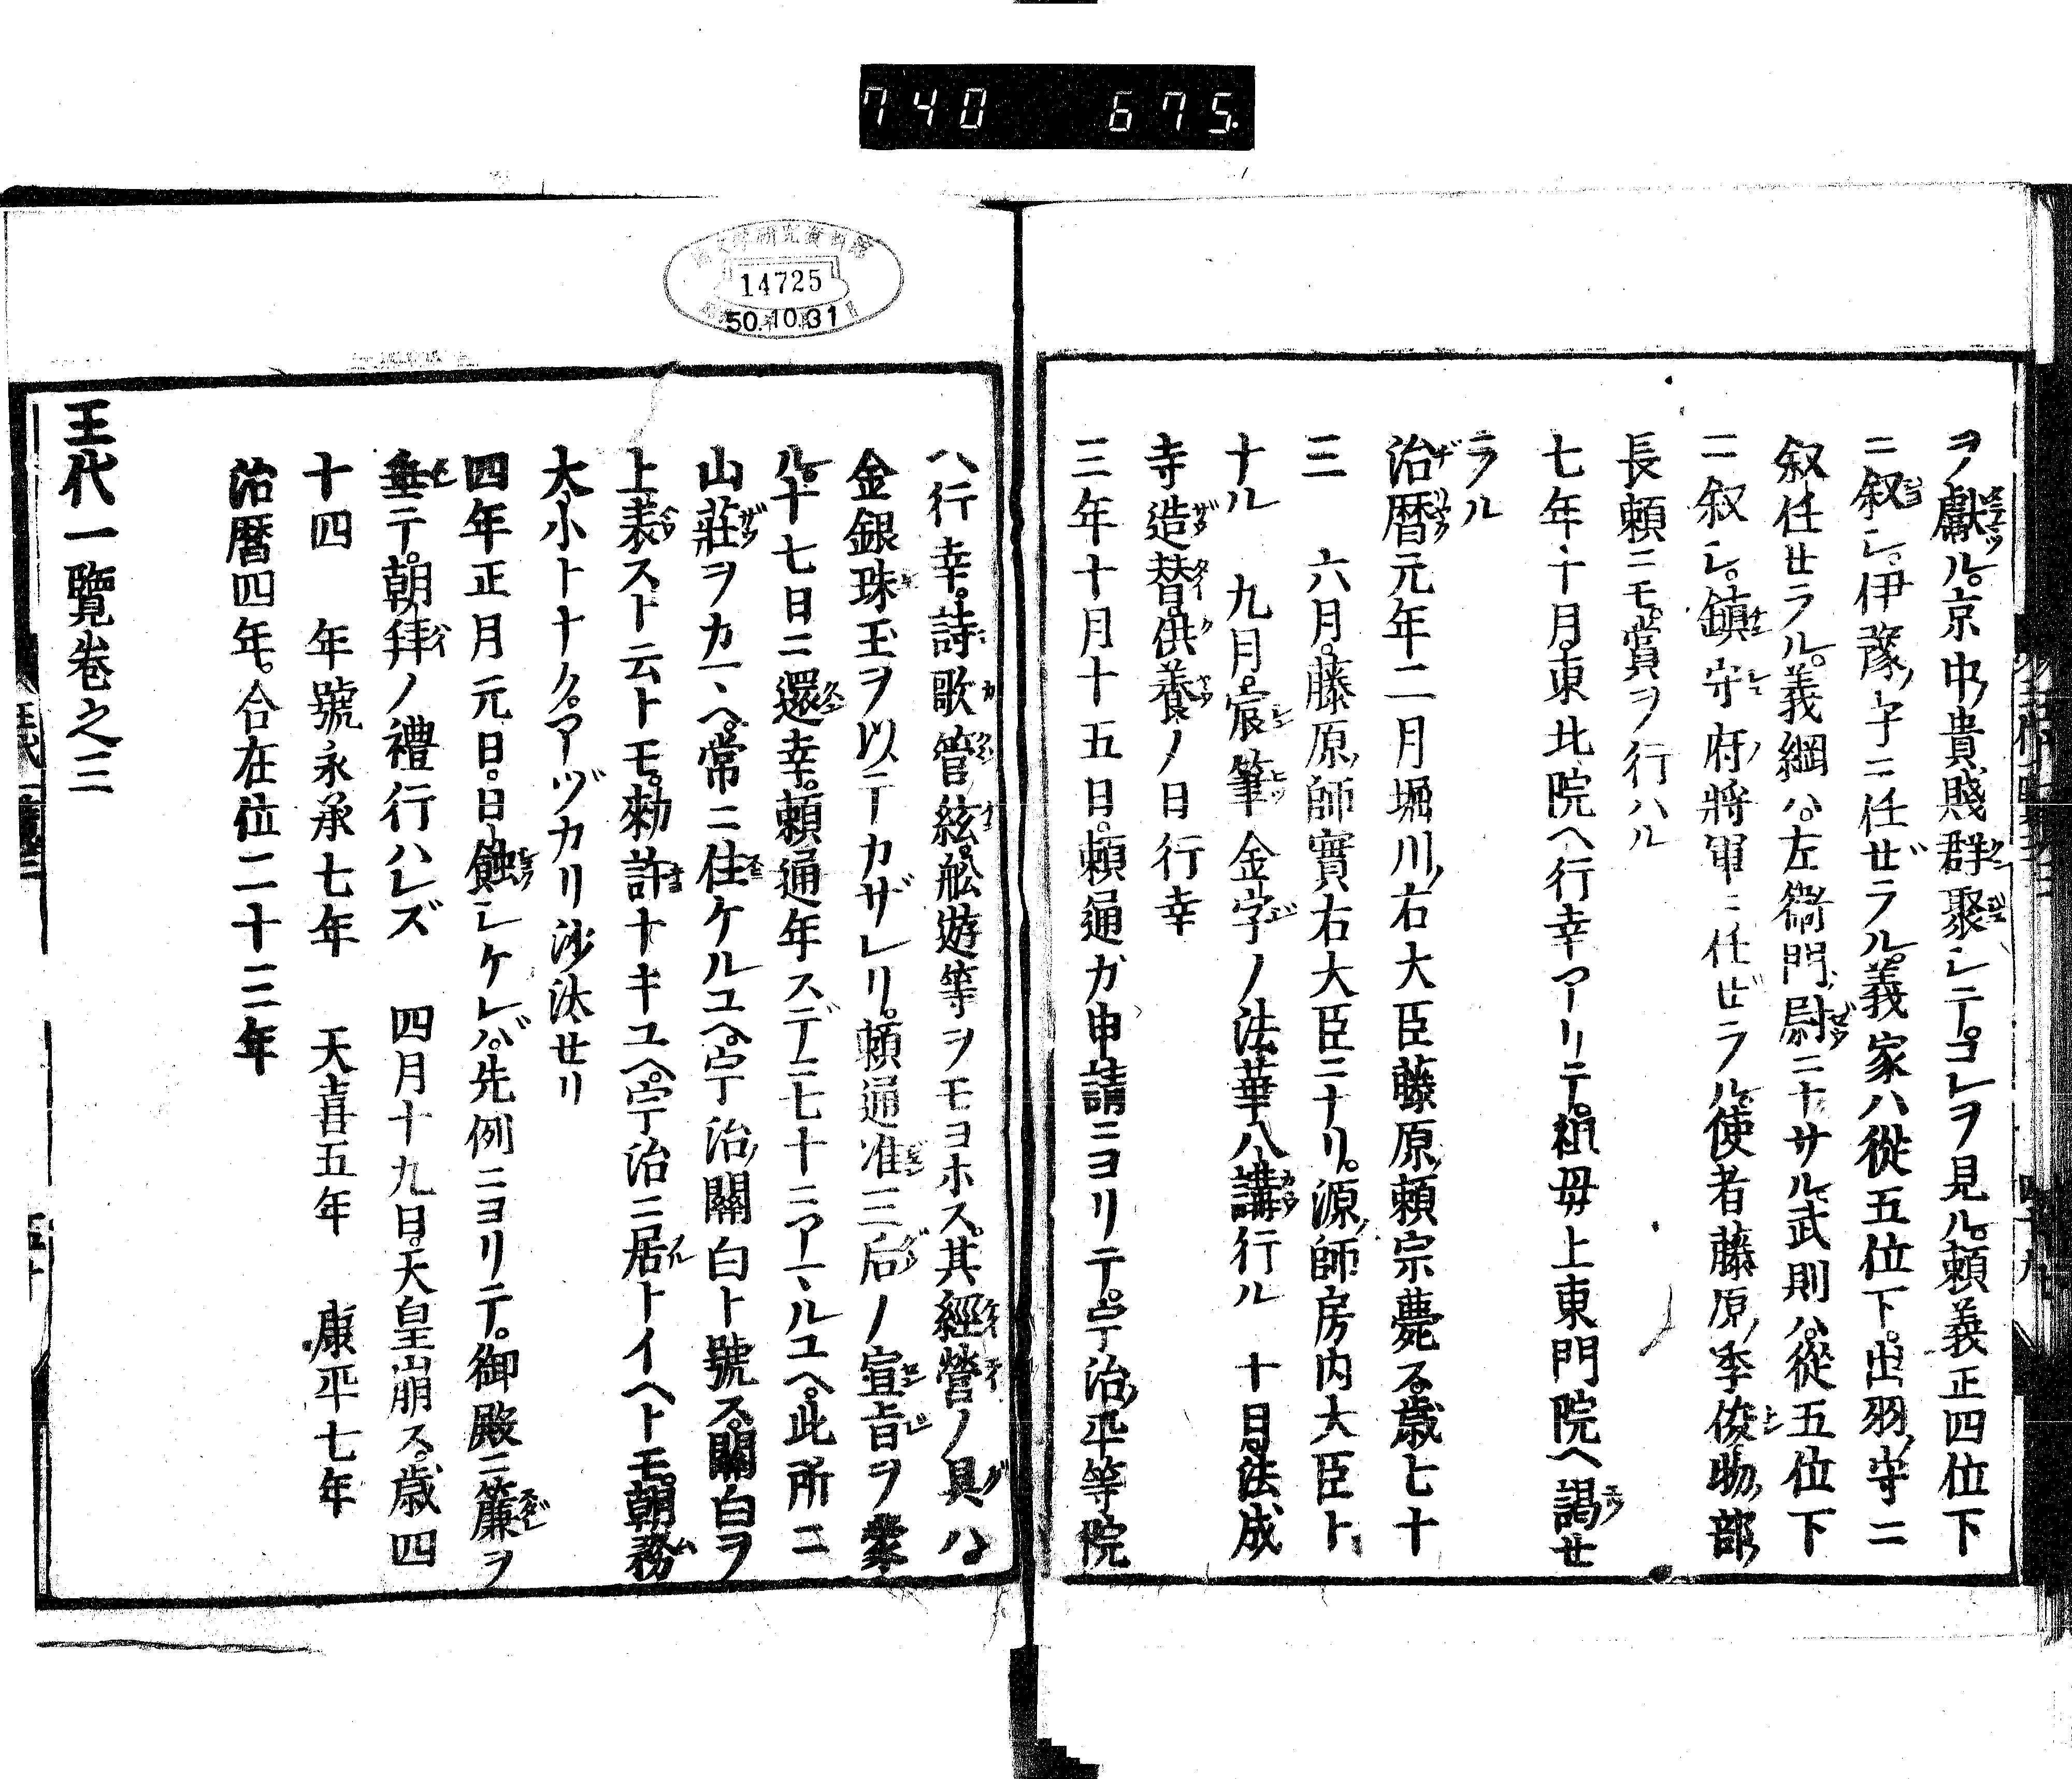 740 675.
14725
50.10.31
ヲ獻ル。京中ノ貴賤群聚シテ。コレヲ見ル。賴義正四位下
ニ叙シ。伊豫ノ守ニ任ゼラル。義家ハ從五位下。出羽ノ守ニ
叙任セラル。義綱ハ。左衞門ノ尉ニナサル。武則ハ。從五位下
ニ叙シ。鎮守府ノ將軍ニ任ゼラル。使者藤原ノ季俊物部ノ
長賴ニモ。賞ヲ行ハル
七年十月。東北院ヘ行幸アリテ。祖母上東門院ヘ謁セ
ラル
治曆元年二月堀川ノ右大臣藤原ノ賴宗薨ス。歳七十
三 六月。藤原ノ師實右大臣ニナリ。源ノ師房内大臣ト
ナル 九月。宸筆金字ノ法華八講行ル 十月。法成
寺造替供養ノ日行幸
三年十月十五日。賴通ガ申請ニヨリテ。宇治ノ平等院
ヘ行幸。詩歌管絃。舩遊等ヲモヨホス。其經營ノ具ハ。
金銀珠玉ヲ以テカザレリ。賴通准三后ノ宣旨ヲ蒙
ル。十七日ニ還幸。賴通年スデニ七十ニアマルユヘ。此所ニ
山莊ヲカマヘ。常ニ住ケルユヘ。宇治ノ關白ト號ス。關白ヲ
上表スト云トモ。勅許ナキユヘ。宇治ニ居トイヘトモ。朝務
大小トナク。アヅカリ沙汰セリ
四年正月元日。日蝕シケレバ。先例ニヨリテ。御殿ニ簾ヲ
垂テ。朝拜ノ禮行ハレズ 四月十九日。天皇崩ス。歳四
十四 年號永承七年 天喜五年 康平七年
治曆四年。合在位二十三年
王代一覽卷之三